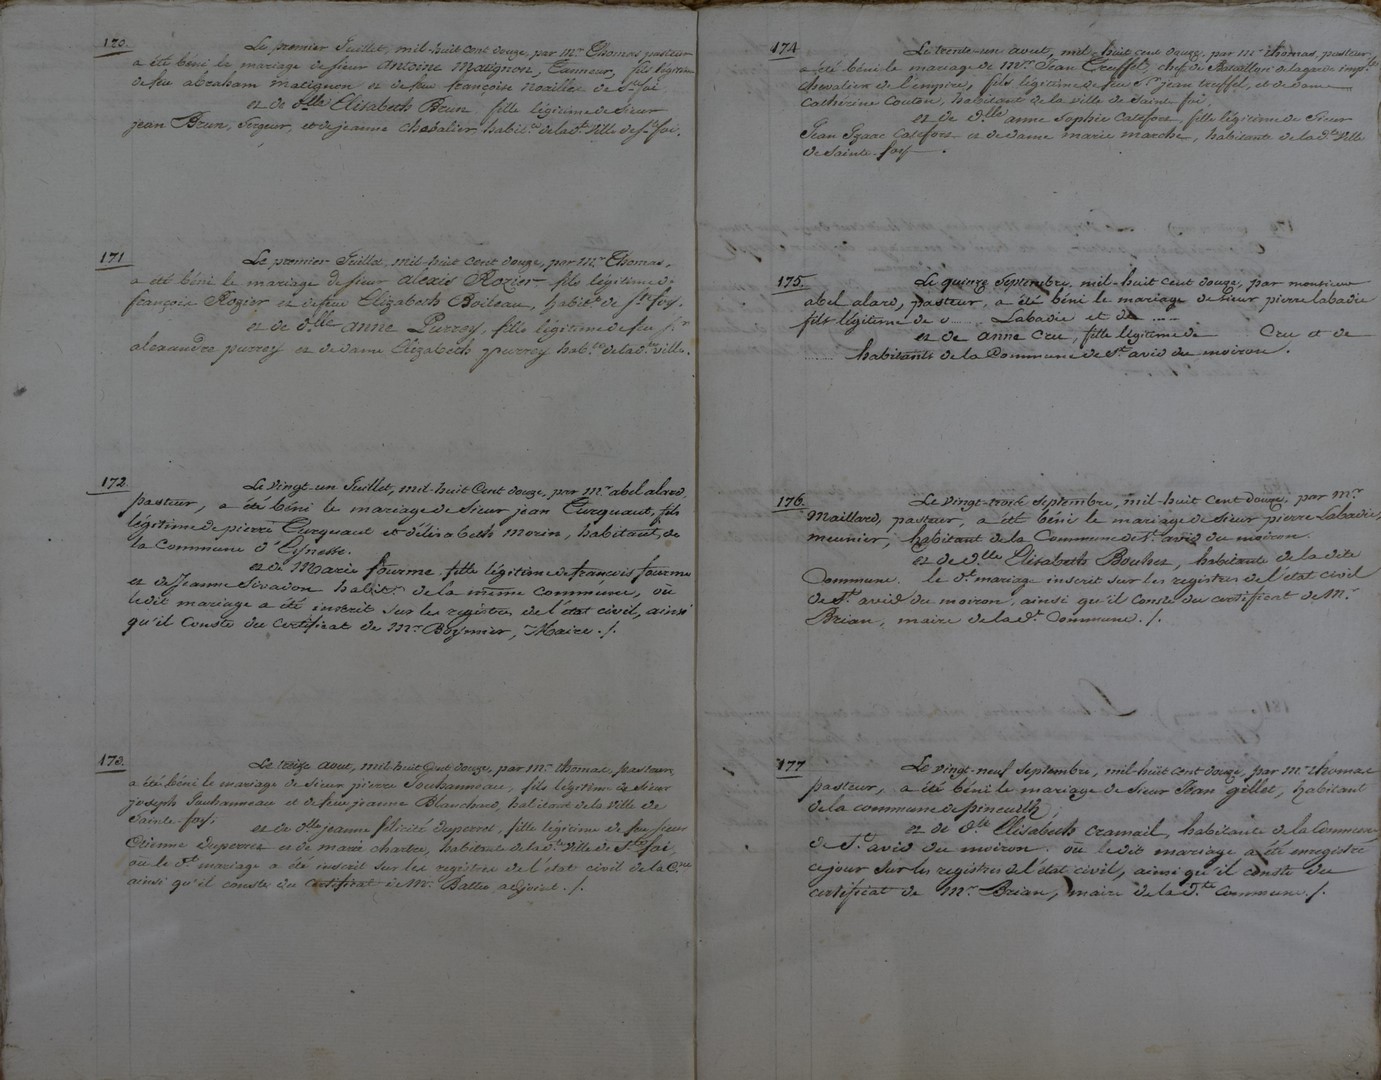 170. Le premier Juillet, mil-huit cent douze, par Mr. Thomas, pasteur
a été béni le mariage de sieur Antoine Matignon, Tanneur, fils légitime
de feu abraham matignon et de feu françoise noailles de Ste. foi.
et de dlle. Elisabeth Brun, fille légitime de sieur
jean Brun, Sergeur, et de jeanne chevalier, habit.ts de la de. ville de Ste. foi.
171 Le premier Juillet, mil-huit cent douze, par Mr. Thomas,
a été béni le mariage de sieur alexis Rozier fils légitime de
françois Rozier et de feue Elizabeth Boileau, habit.ts de Ste. foy.
et de dlle anne Purrey, fille légitime de feu Sr.
alexandre purrey et de dame Elizabeth purrey hab.te de la dte. ville.
172 Le vingt-un Juillet, mil-huit Cent douze, par Mr. abel alard,
pasteur, a été béni le mariage de sieur jean Turquaut, fils
légitime de pierre Turquaut et d'élisabeth morin, habitant de
la Commune d'Eynesse.
et de Marie fourme, fille légitime de françois fourme
et de Jeanne Sivadon habit.s de la même commune, où
le dit mariage a été inscrit sur les registres de l'état civil, ainsi
qu'il Conste du Certificat de Mr. Boymier, Maire ./.
173. Le treize aout, mil-huit Cent douze, par Mr. thomas, pasteur,
a été béni le mariage de sieur pierre Jouhanneau, fils légitime de sieur
joseph Jouhanneau et de feue jeanne Blanchard, habitant de la ville de
Sainte-foy;
et de dlle jeanne félicité duperret, fille légitime de feu sieur
Etienne duperret et de marie charles, habitante de la de. ville de Ste. foi,
où le dt. mariage a été inscrit sur les registres de l'état civil de la Cne.
ainsi qu'il conste du certificat de Mr. adjoint ./.
174 Le trente-un aout, mil-huit cent douze, par Mr thomas, pasteur,
a été béni le mariage de Mr. Jean Treffel, chef de Bataillon de la garde imp.le
chevalier de l'empire, fils légitime de feu Sr. jean treffel, et de dame
Catherine Couton, habitant de la ville de Sainte-foi,
et de dlle anne Sophie Catefort, fille légitime de Sieur
Jean Izaac Catefort et de dame marie marche, habitante de la de. Ville
de Sainte-foy.
175. Le quinze septembre, mil-huit cent douze, par monsieur
abel alard, pasteur, a été béni le mariage de sieur pierre labadie
fils légitime de d ..... Labadie et de .....
et de anne Cru, fille légitime de Cru et de
....... habitants de la Commune de St. avid du moiron.
176. Le vingt-trois septembre, mil-huit cent douze, par Mr.
Maillard, pasteur, a été béni le mariage de sieur pierre Labadie,
meunier, habitant de la Commune de St. avid du moiron.
et de dlle Elisabeth Bouhet, habitante de la dite
Commune. le dt. mariage inscrit sur les registres de l'état civil
de St. avid du moiron, ainsi qu'il conste du certificat de Mr.
Brian, maire de la de. Commune ./.
177 Le vingt-neuf septembre, mil-huit cent douze, par Mr. thomas
pasteur, a été béni le mariage de sieur Jean gillet, habitant
de la commune de pineuilh;
et de dlle Elisabeth cramail, habitante de la Commune
de St. avid du moiron. où le dit mariage a été enregistré
ce jour sur les registres de l'état civil, ainsi qu'il conste du
certificat de Mr. Brian, maire de la de. Commune ./.